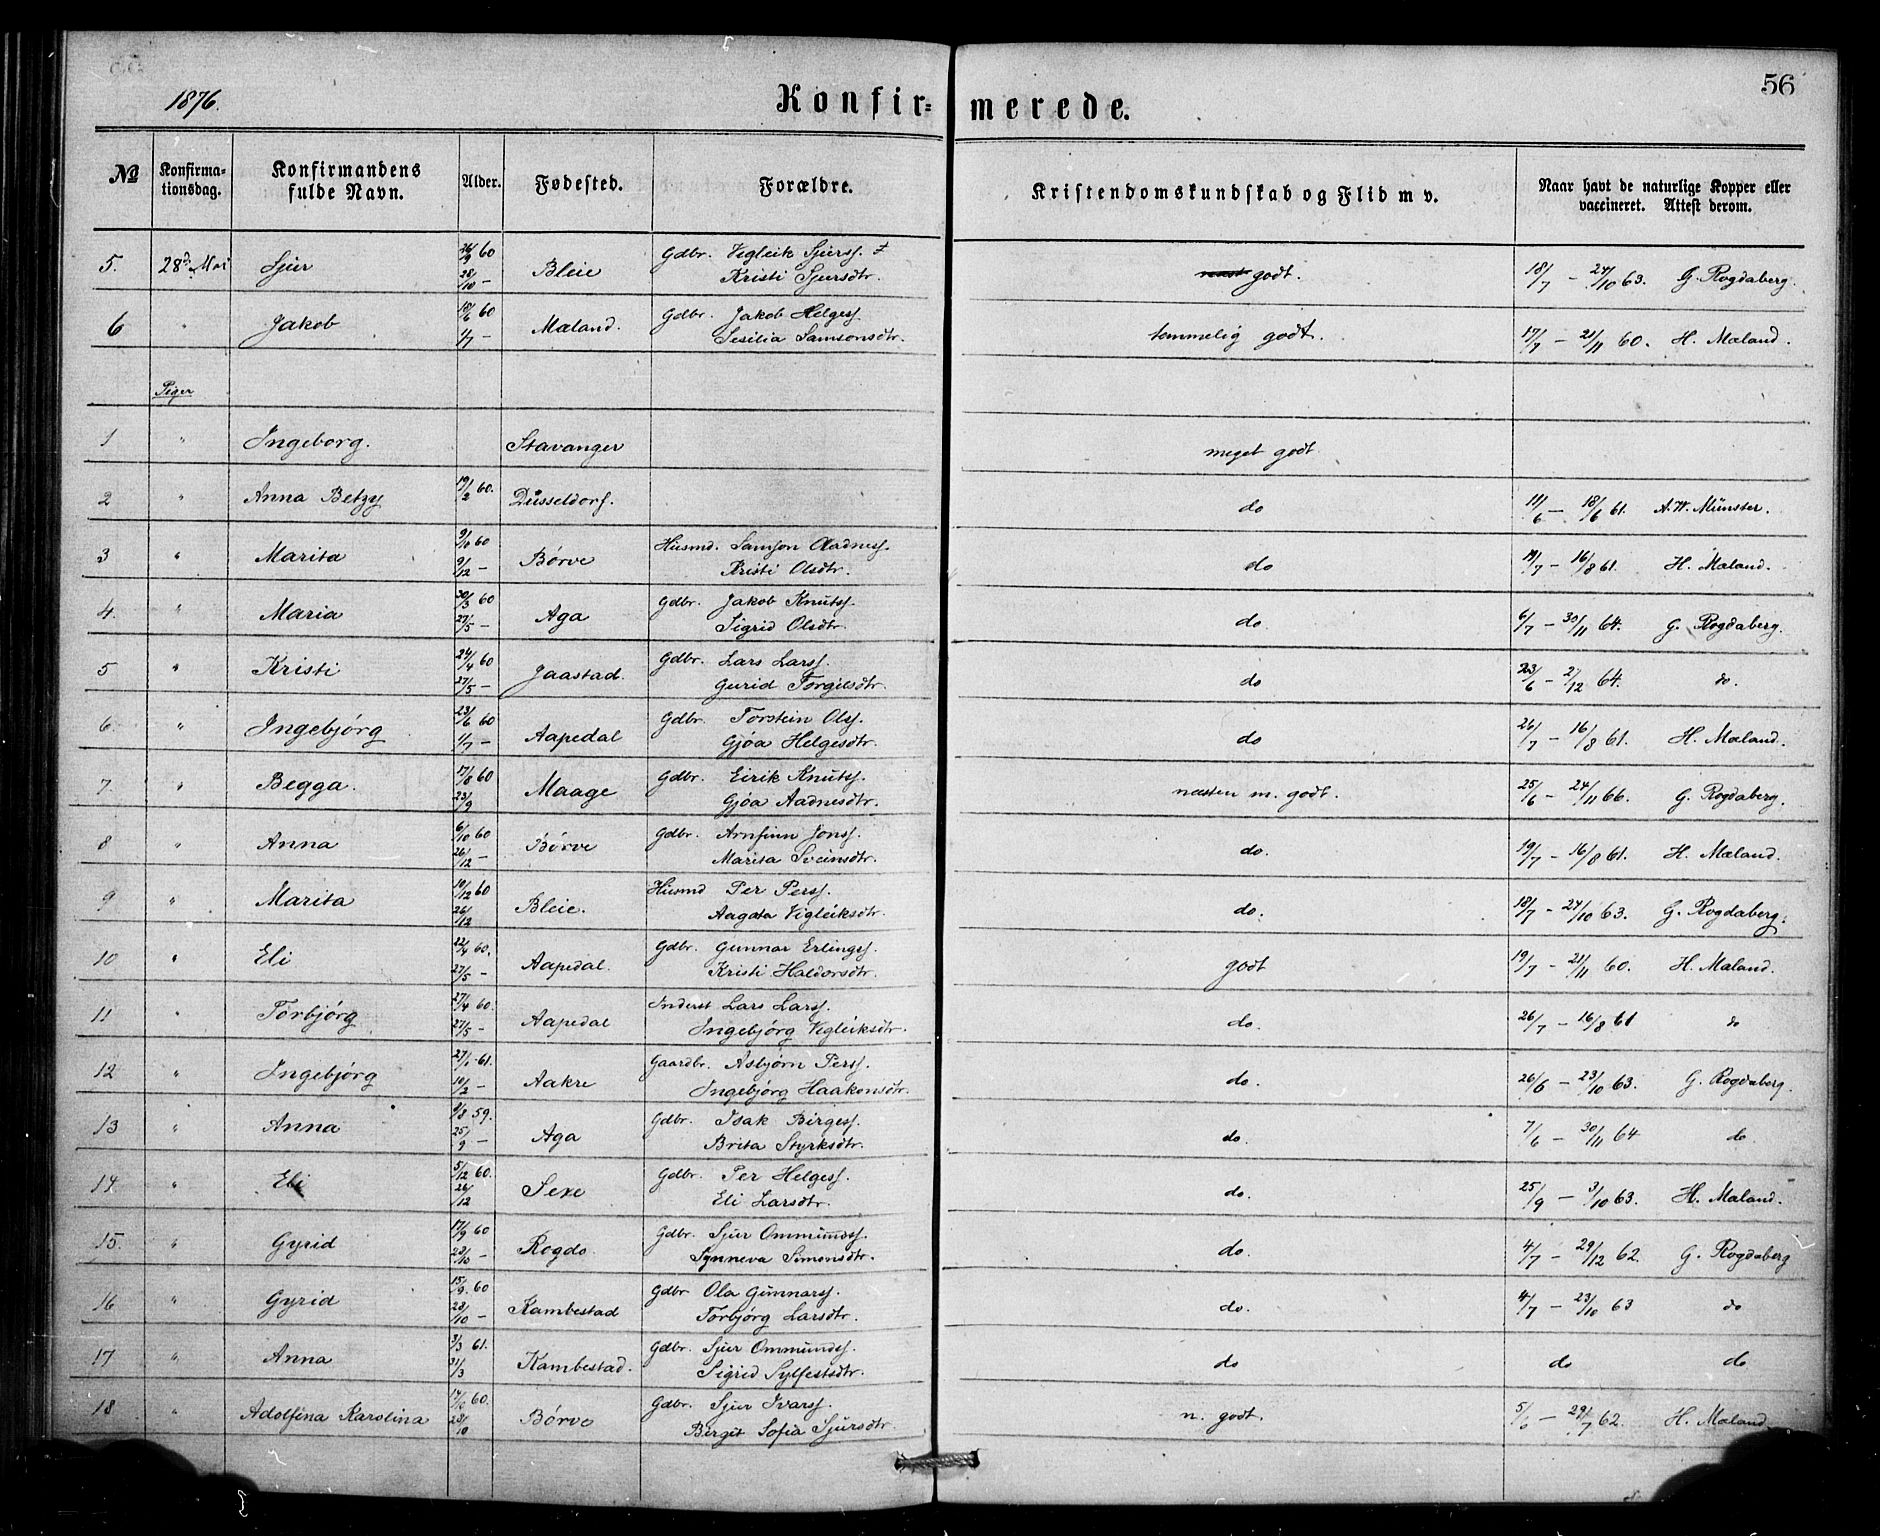 1876. Konfir= merede. 56
№ Konfirma-tionsdag. Konfirmandens fulde Navn. Alder. Fødested. Forældre. Kristendomskundskab og Flid m v. Naar havt de naturlige Kopper eller vaccineret. Attest derom.
5. 28d. Mai Sjur 26/9 60 Bleie Gdbr. Vigleik Sjurss. ✝ godt. 18/7 – 24/10 63. G. Rogdaberg.
28/10 – Kristi Sjursdtr.
6 " Jakob 15/6 60 Mæland. Gdbr. Jakob Helgess. temmelig godt. 17/7 – 21/11 60. H. Mæland.
1/7 – Sesilia Samsonsdtr.
Piger
1 " Ingeborg. Stavanger meget godt
2 " Anna Betzy 19/2 60. Düsseldorf. do 11/6 – 18/6 61. A.W. Münster.
3 " Marita 9/10 60 Børve Husmd. Samson Aadness. do 19/7 – 16/8 61. H. Mæland.
9/12 – Kristi Olsdtr.
4. " Maria 30/3 60 Aga Gdbr. Jakob Knutss. do. 6/7 – 30/11 64. G. Rogdaberg.
27/5 – Sigrid Olsdtr.
5 " Kristi 24/4 60 Jaastad. Gdbr. Lars Larss. do 23/6 – 2/12 64. do.
27/5 – Gurid Torgilsdtr.
6. " Ingebjørg 23/6 60 Aapedal Gdbr. Torstein Olss. do 26/7 – 16/8 61. H. Mæland.
1/7 – Gjøa Helgesdtr.
7. " Begga. 17/8 60 Maage Gdbr. Eirik Knutss. næsten m. godt. 25/6 – 24/11 66. G. Rogdaberg.
23/9 Gjøa Aadnesdtr.
8 " Anna 6/10 60 Børve Gdbr. Arnfinn Jonss. do. 19/7 – 16/8 61. H. Mæland.
26/12 – Marita Sveinsdtr.
9 " Marita 10/12 60 Bleie. Husmd Per Perss. do. 18/7 – 24/10 63. G. Rogdaberg.
26/12 Aagata Vigleiksdtr.
10 " Eli 22/4 60. Aapedal. Gdbr. Gunnar Erlingss. godt 19/7 – 21/11 60. H. Mæland.
27/5 – Kristi Haldorsdtr.
11 " Torbjørg 27/4 60. Aapedal Inderst Lars Larss. do. 26/7 – 16/8 61 do
27/5 – Ingebjørg Vigleiksdtr.
12 " Ingebjørg 27/1 61. Aakre Gaardbr. Asbjørn Perss. do. 26/6 – 23/10 63. G. Rogdaberg.
10/2 – Ingebjørg Haakonsdtr.
13 " Anna 9/8 59. Aga Gdbr. Isak Birgess. do. 7/6 – 30/11 64 do
25/9 – Brita Styrksdtr.
14. " Eli 5/12 60. Sexe Gdbr. Per Helgess. do. 25/9 – 3/10 63. H. Mæland.
26/12 Eli Larsdtr.
15. " Gyrid 17/9 60 Rogdo. Gdbr. Sjur Ommundss. do. 4/7 – 29/12 62. G. Rogdaberg
23/10 – Synneva Simonsdtr.
16 " Gyrid 15/9. 60 Kambestad Gdbr Ola Gunnarss. do. 4/7 – 23/10 63 do
23/10 – Torbjørg Larsdtr.
17 " Anna 3/3 61. Kambestad. Gdbr. Sjur Ommundss. do do do
31/3 Sigrid Sylfestsdtr.
18 " Adolfina Karolina 14/10 60. Børve Gdbr. Sjur Ivarss. n. godt. 5/6 – 29/7 62. H. Mæland
23/10 Birgit Sofia Sjursdtr.